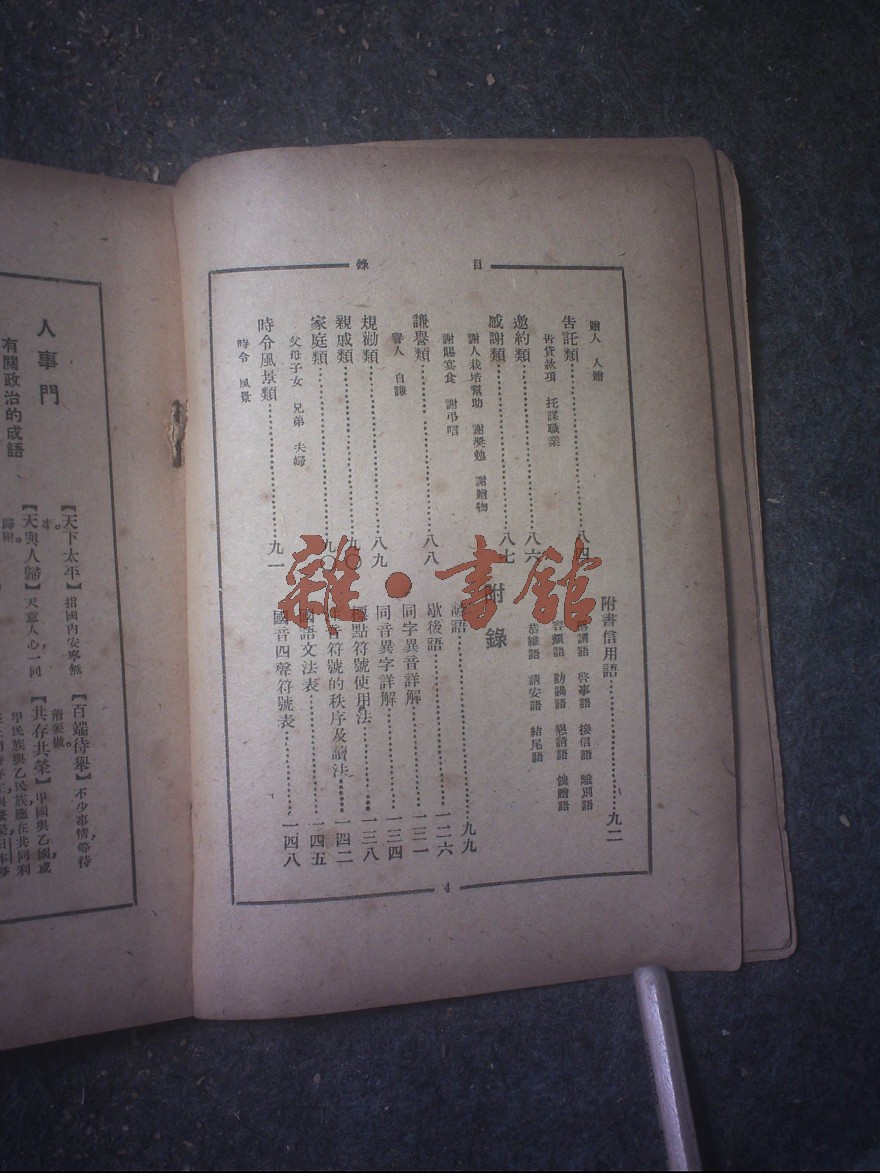 目錄
贈人 人贈
告託類⋯⋯八四
告貸款項 托謀職業
邀約類⋯⋯八六
感謝類⋯⋯八七
謝人栽培幫助 謝獎勉 謝贈物
謝賜宴食 謝弔唁
謙譽類⋯⋯八八
譽人 自謙
規勸類⋯⋯八九
親戚類⋯⋯九〇
家庭類⋯⋯九〇
父母子女 兄弟 夫婦
時令風景類⋯⋯九一
時令 風景
附書信用語⋯⋯九二
啓事語 接信語 離別語
訪謁語 懇請語 餽贈語
恭維語 請安語 結尾語
附錄
諺語⋯⋯九九
歇後語⋯⋯一二六
同字異音詳解⋯⋯一三一
同音異字詳解⋯⋯一三四
標點符號使用法⋯⋯一三八
注音符號的秩序及讀法⋯⋯一四二
國語文法表⋯⋯一四五
國音四聲符號表⋯⋯一四八
4
人事門
有關政治的成語
【天下太平】指國內安寧無
事。
【天與人歸】天意人心,一同
歸附。
【百端待舉】不少事情,等待
【共存共榮】甲國與乙國,或
甲民族與乙民族,應在共同利
雜·書館